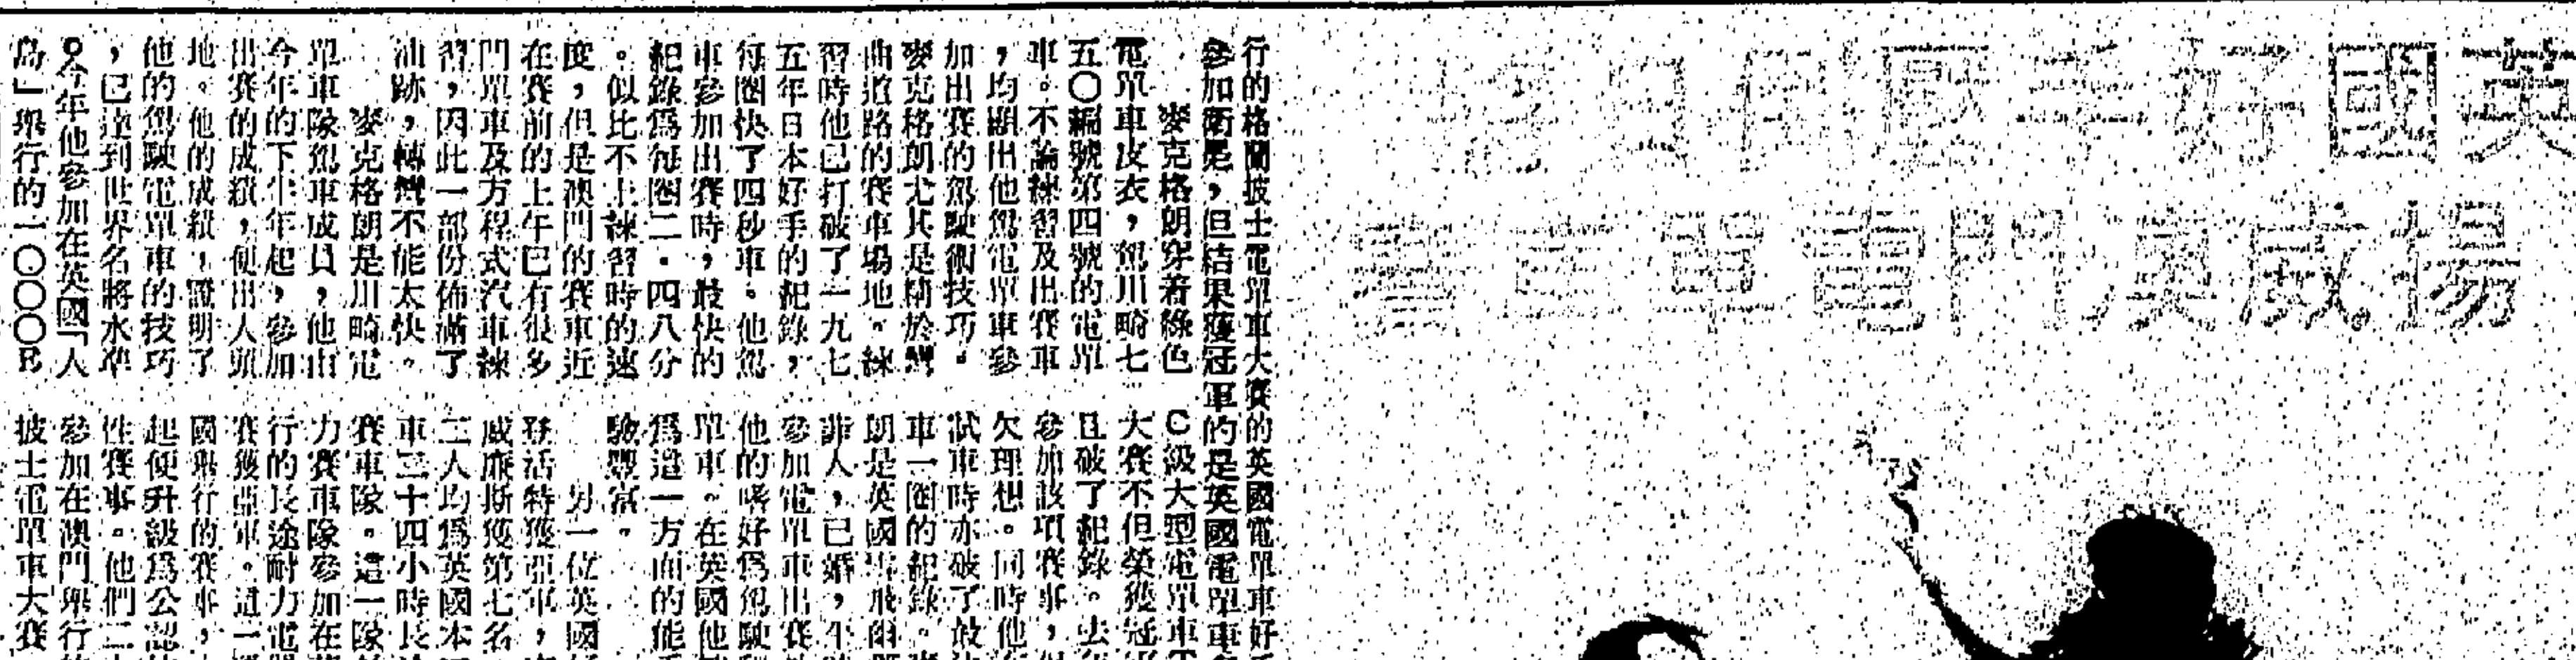 英國好手
揚威澳門電單車賽
行的格蘭披士電單車大賽的英國電單車好
參加衛冕,但結果獲冠軍的是英國電單車
麥克格朗穿着綠色
電單車皮衣,駕川畸七
五〇編號第四號的電單
車。不論練習及出賽車
,均顯出他駕電單車參
加出賽的駕駛術技巧。
麥克格朗尤其是精於彎
曲道路的賽車場地。練
習時他已打破了一九七
五年日本好手的紀錄,
每圈快了四秒車。他駕
車參加出賽時,最快的
紀錄爲每圈二.四八分
。似比不上練習時的速
度,但是澳門的賽車近
在賽前的上午已有很多
門單車及方程式汽車練
習,因此一部份佈滿了
油跡,轉彎不能太快。
麥克格朗是川畸電
單車隊駕車成員,他由
今年的下半年起,參加
出賽的成績,便出人頭
地。他的成績,證明了
他的駕駛電單車的技巧
,已達到世界名將水準
。今年他參加在英國「人
島」舉行的一〇〇〇E
C級大型電單車
大賽不但榮獲冠
且破了紀錄。去
參加該項賽事,
欠理想。同時他
試車時亦破了最
車一圈的紀錄。
朗是英國
菲人,已婚,
參加電單車出賽
他的嗜好爲駕駛
單車。在英國他
爲這一方面的能
驗豐富。
另一位英國
登活特獲亞軍,
威廉斯獲第七名
二人均爲英國本
車二十四小時長
賽車隊。這一隊
力賽車隊參加在
行的長途耐力電
賽獲亞軍。這一
國舉行的賽事,
起便升級爲公認
性賽事。他們二
參加在澳門舉行
披士電單車大賽